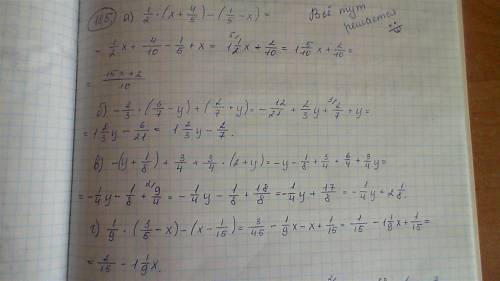 1185. а) 1/2 · (x + 4/5) − (1/5 − x) = Всё тут решается
= 1/2 x + 4/10 − 1/5 + x = 1 1/2 x + 2/10 = 1 5/10 x + 2/10 =
= (15x + 2)/10
б) −2/3 · (6/7 − y) + (2/7 + y) = −12/21 + 2/3 y + 2/7 + y =
= 1 2/3 y − 6/21 = 1 2/3 y − 2/7.
в) −(y + 1/8) + 3/4 + 3/4 · (2 + y) = −y − 1/8 + 3/4 + 6/4 + 3/4 y =
= −1/4 y − 1/8 + 9/4 = −1/4 y − 1/8 + 18/8 = −1/4 y + 17/8 = −1/4 y + 2 1/8.
г) 1/9 · (3/5 − x) − (x − 1/15) = 3/45 − 1/9 x − x + 1/15 = 1/15 − 1 1/9 x + 1/15 =
= 2/15 − 1 1/9 x.